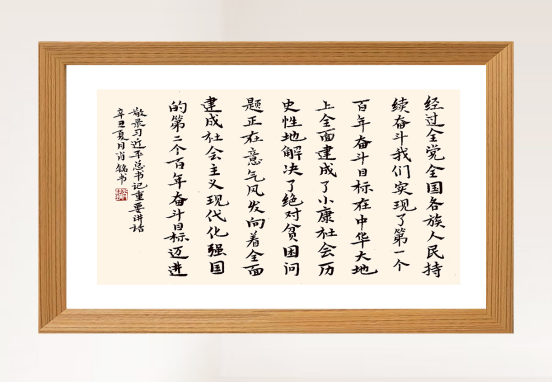 经过全党全国各族人民持
续奋斗我们实现了第一个
百年奋斗目标在中华大地
上全面建成了小康社会历
史性地解决了绝对贫困问
题正在意气风发向着全面
建成社会主义现代化强国
的第二个百年奋斗目标迈进
敬录习近平总书记重要讲话
辛丑夏月肖书